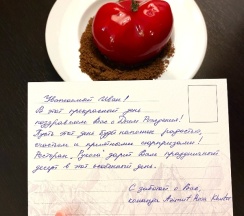 Уважаемый Иван!
В этот прекрасный день
поздравляем Вас с Днем Рождения!
Пусть этот день будет наполнен радостью,
счастьем и приятными сюрпризами!
Ресторан дарит Вам праздничный
десерт в этот особенный день.
С заботой о Вас,
команда